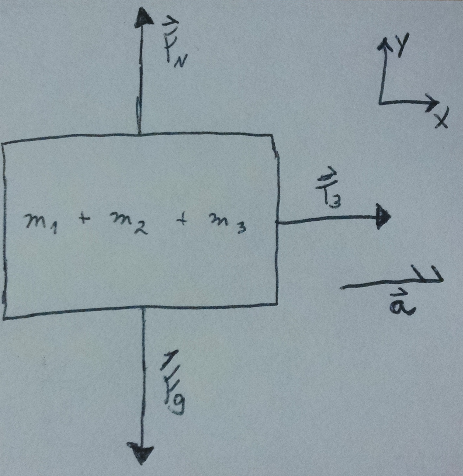 F_N
y
x
m₁ + m₂ + m₃
T₃
a
F_g